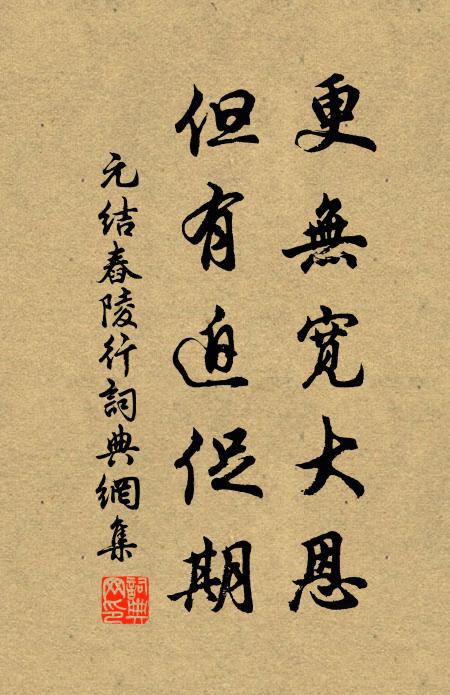 更無寬大恩
但有迫促期
元結舂陵行詞典網集
詞典
网印